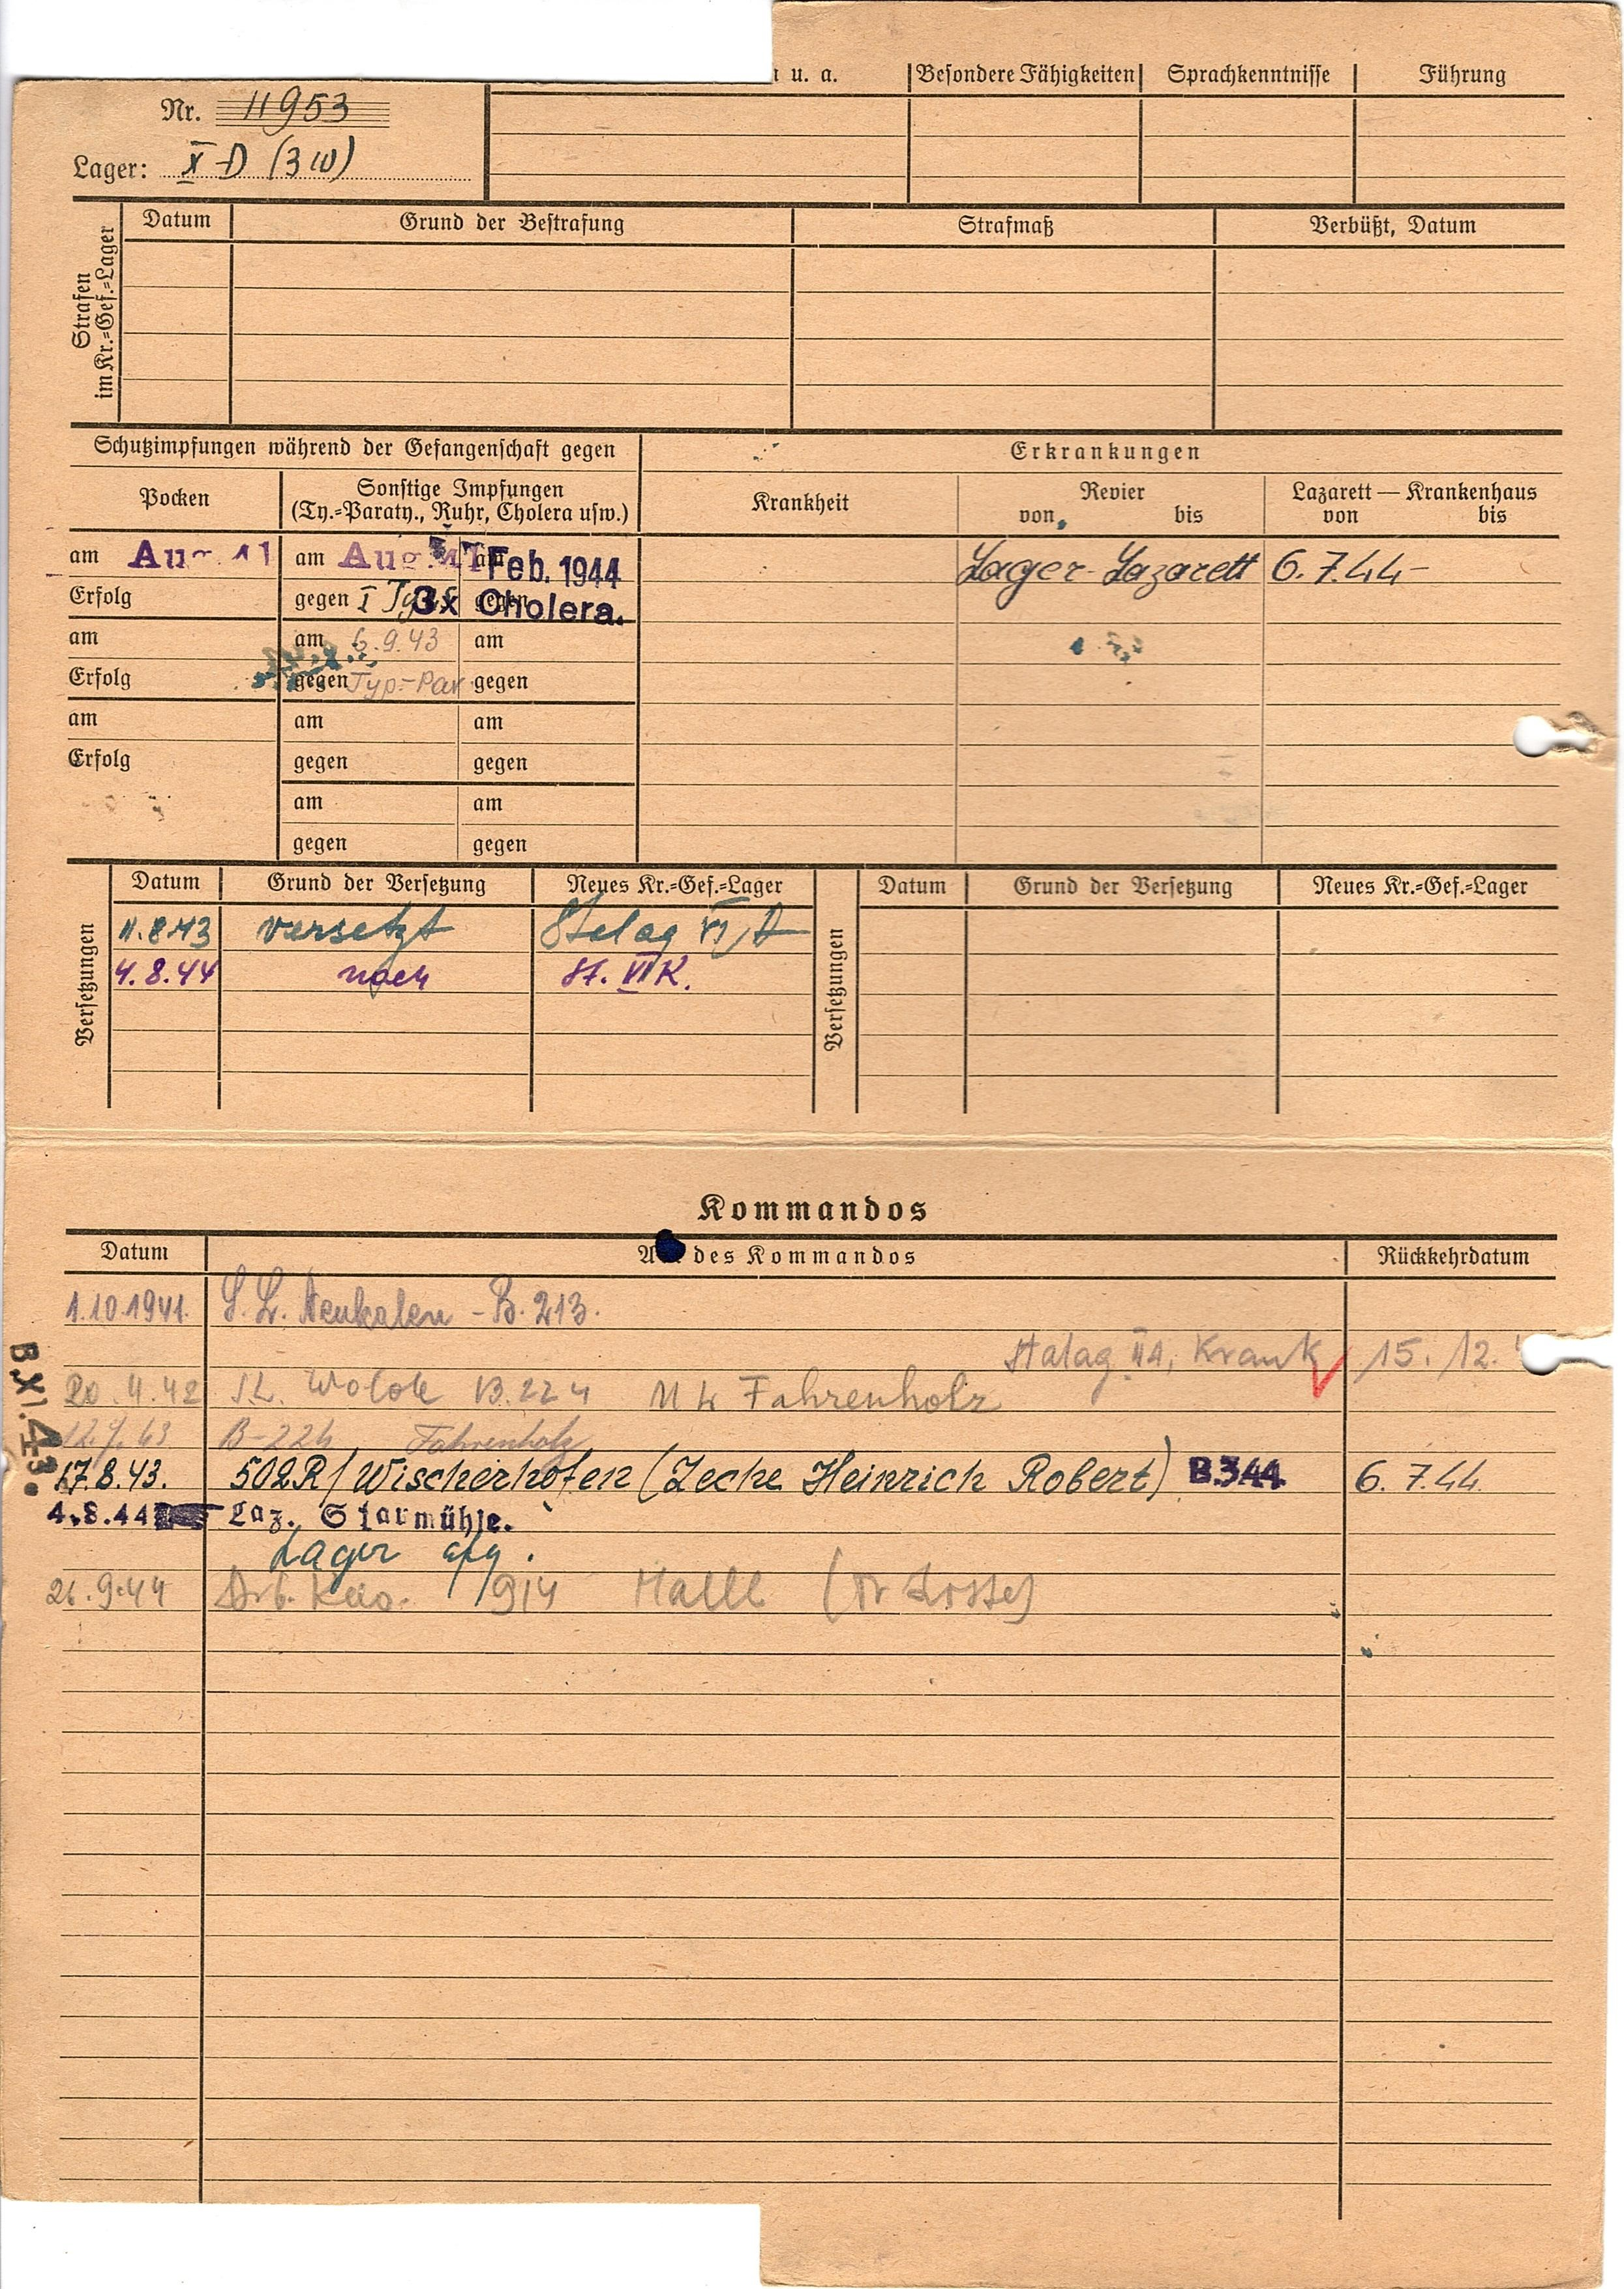 u. a. Besondere Fähigkeiten Sprachkenntnisse Führung
Nr. 11953
Lager: X D (310)
Strafen im Kr.=Gef.=Lager
Datum Grund der Bestrafung Strafmaß Verbüßt, Datum
Schutzimpfungen während der Gefangenschaft gegen
Erkrankungen
Pocken
Sonstige Impfungen
(Ty.=Paraty., Ruhr, Cholera usw.)
Krankheit
Revier
von bis
Lazarett — Krankenhaus
von bis
am Aug. 41 am Aug. 41 am Feb. 1944
Lager-Lazarett 6.7.44-
Erfolg gegen I gegen 3x Cholera.
am am 6.9.43 am
Erfolg gegen Typ.=Par gegen
am am am
Erfolg gegen gegen
am am
gegen gegen
Versetzungen
Datum Grund der Versetzung Neues Kr.=Gef.=Lager
11.8.43 versetzt Stalag VI/D
4.8.44 nach St. VI K.
Versetzungen
Datum Grund der Versetzung Neues Kr.=Gef.=Lager
Kommandos
Datum des Kommandos Rückkehrdatum
1.10.1941. Neukalen - B. 213.
Stalag II A, Krank 15. 12.
B.XI.43.
20.11.42 B. 224 Fahrenholz
B-224 Fahrenholz
17.8.43. 502R/Wischerhöfen (Zeche Heinrich Robert) B.344 6.7.44.
4.8.44 Laz. Staumühle.
Lager
21.9.44 Arb. Kdo. 914 Halle